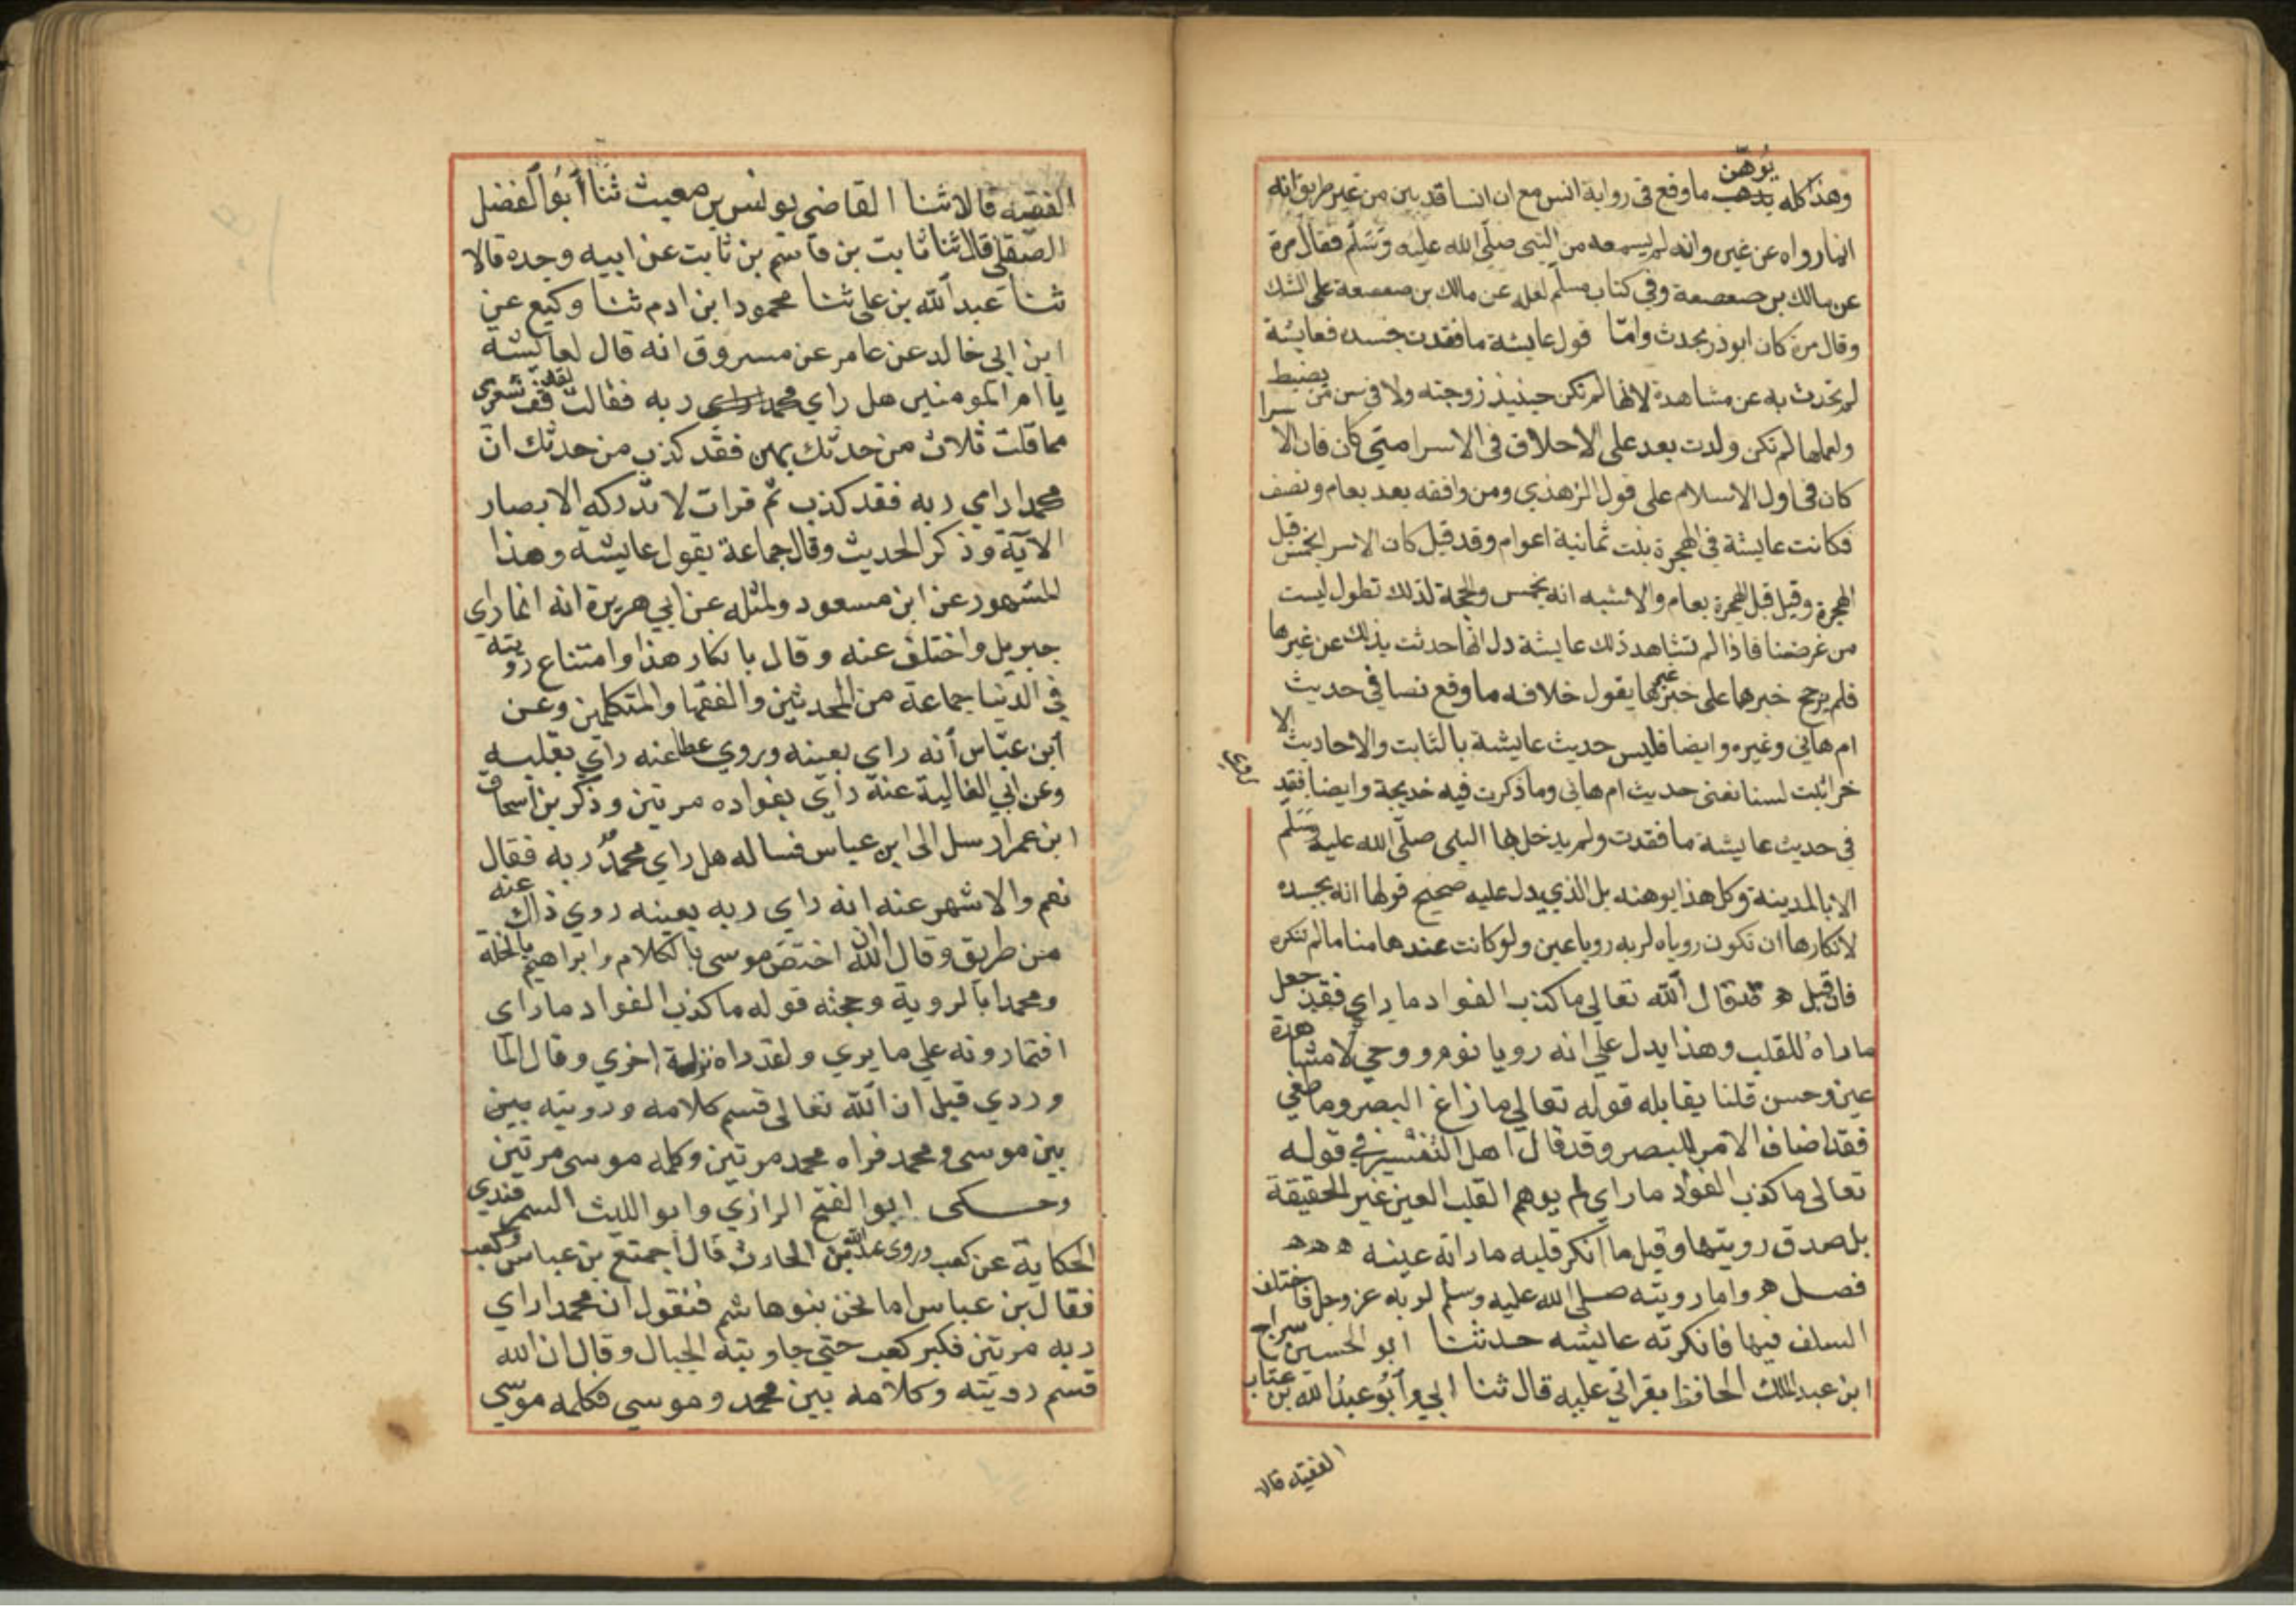 وهذا كله يوهن ما وقع في رواية انس مع ان انسا قد بين من غير طريق انه
انما رواه عن غيره وانه لم يسمعه من النبي صلى الله عليه وسلم فقال مرة
عن مالك بن صعصعة وفي كتاب مسلم لعله عن مالك بن صعصعة على الشك
وقال مرة كان ابوذر يحدث واما قول عايشة ما فقدت جسده فعايشة
لم تحدث به عن مشاهدة لانها لم تكن حينيذ زوجته ولا في سن من يضبط
ولعلها لم تكن ولدت بعد على الاختلاف في الاسرا متي كان فان الاسرا
كان في اول الاسلام على قول الزهدي ومن وافقه بعد بعام ونصف
فكانت عايشة في الهجرة بنت ثمانية اعوام وقد قيل كان الاسرا لخمس قبل
الهجرة وقيل قبل الهجرة بعام والاشبه انه بخمس والحجة لذلك تطول ليست
من غرضنا فاذا لم تشاهد ذلك عايشة دل انها حدثت بذلك عن غيرها
فلم يرجح خبرها على خبر غيرها يقول خلافه ما وقع نصا في حديث
ام هاني وغيره وايضا فليس حديث عايشة بالثابت والاحاديث الا
خر اثبت لسنا نعني حديث ام هاني وما ذكرت فيه خديجة وايضا فقد روي
في حديث عايشة ما فقدت ولم يدخل بها النبي صلى الله عليه وسلم
الا بالمدينة وكل هذا يوهنه بل الذي يدل عليه صحيح قولها انه بجسده
لانكارها ان تكون روياه لربه رويا عين ولو كانت عندها مناما لم تنكره
فان قيل ه قد قال الله تعالي ما كذب الفواد ما راي فقد جعل
ما راه للقلب وهذا يدل علي انه رويا نوم ووحي لا مشاهدة
عين وحسن قلنا يقابله قوله تعالي ما زاغ البصر وما طغي
فقد اضاف الامر للبصر وقد قال اهل التفسير في قوله
تعالى ما كذب الفؤاد ما راي لم يوهم القلب العين غير الحقيقة
بل صدق رويتها وقيل ما انكر قلبه ما راته عينه ه ه ه
فصل ه واما رويته صلى الله عليه وسلم لربه عز وجل فاختلف
السلف فيها فانكرته عايشه حدثنا ابو الحسين سراج
ابن عبد الملك الحافظ بقراتي عليه قال ثنا ابي وابو عبد الله بن عتاب
الفقيه قالا
الفقيه قالا ثنا القاضي يونس بن مغيث ثنا ابو الفضل
الصقلي قال ثنا ثابت بن قاسم بن ثابت عن ابيه وجده قالا
ثنا عبد الله بن علي ثنا محمود ابن ادم ثنا وكيع عن
ابن ابي خالد عن عامر عن مسروق انه قال لعايشة
يا ام المومنين هل راي محمد ربه فقالت لقد قف شعري
مما قلت ثلاث من حدثك بهن فقد كذب من حدثك ان
محمدا راي ربه فقد كذب ثم قرات لا تدركه الابصار
الآية وذكر الحديث وقال جماعة بقول عايشة وهذا
المشهور عن ابن مسعود ولمثله عن ابي هريرة انه انما راي
جبريل واختلف عنه وقال بانكار هذا وامتناع رويته
في الدنيا جماعة من المحدثين والفقها والمتكلمين وعن
ابن عباس أنه راي بعينه وروي عطا عنه راي بقلبه
وعن ابي الغالية عنه راي بفواده مرتين وذكر بن اسحاق
ابن عمر ارسل الى ابن عباس فساله هل راي محمد ربه فقال
نعم والاشهر عنه انه راي ربه بعينه روي ذلك عنه
من طريق وقال ان الله اختص موسى بالكلام وابراهيم بالخلة
ومحمدا بالروية وحجته قوله ما كذب الفواد ما راى
افتمارونه علي ما يري ولقد راه نزلة اخري وقال الما
وردي قيل ان الله تعالى قسم كلامه ورويته بين
بين موسى ومحمد فراه محمد مرتين وكلمه موسى مرتين
وحكى ابو الفتح الرازي وابو الليث السمرقندي
الحكاية عن كعب وروى عبد الله بن الحارث قال اجتمع بن عباس وكعب
فقال بن عباس اما نحن بنو هاشم فنقول ان محمدا راي
ربه مرتين فكبر كعب حتي جاوبته الجبال وقال ان الله
قسم رويته وكلامه بين محمد وموسي فكلمه موسي